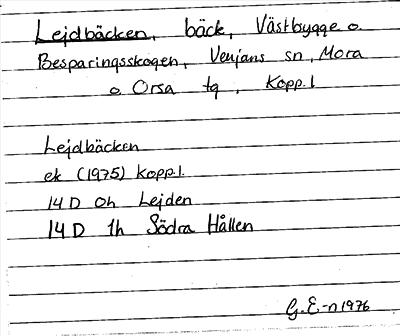 Lejdbäcken, bäck, Västbygge o.
Besparingsskogen, Venjans sn, Mora
o. Orsa tg, Kopp. l
Lejdbäcken
ek (1975) Kopp. l.
14 D 0h Lejden
14 D 1h Södra Hållen
G. E-n 1976